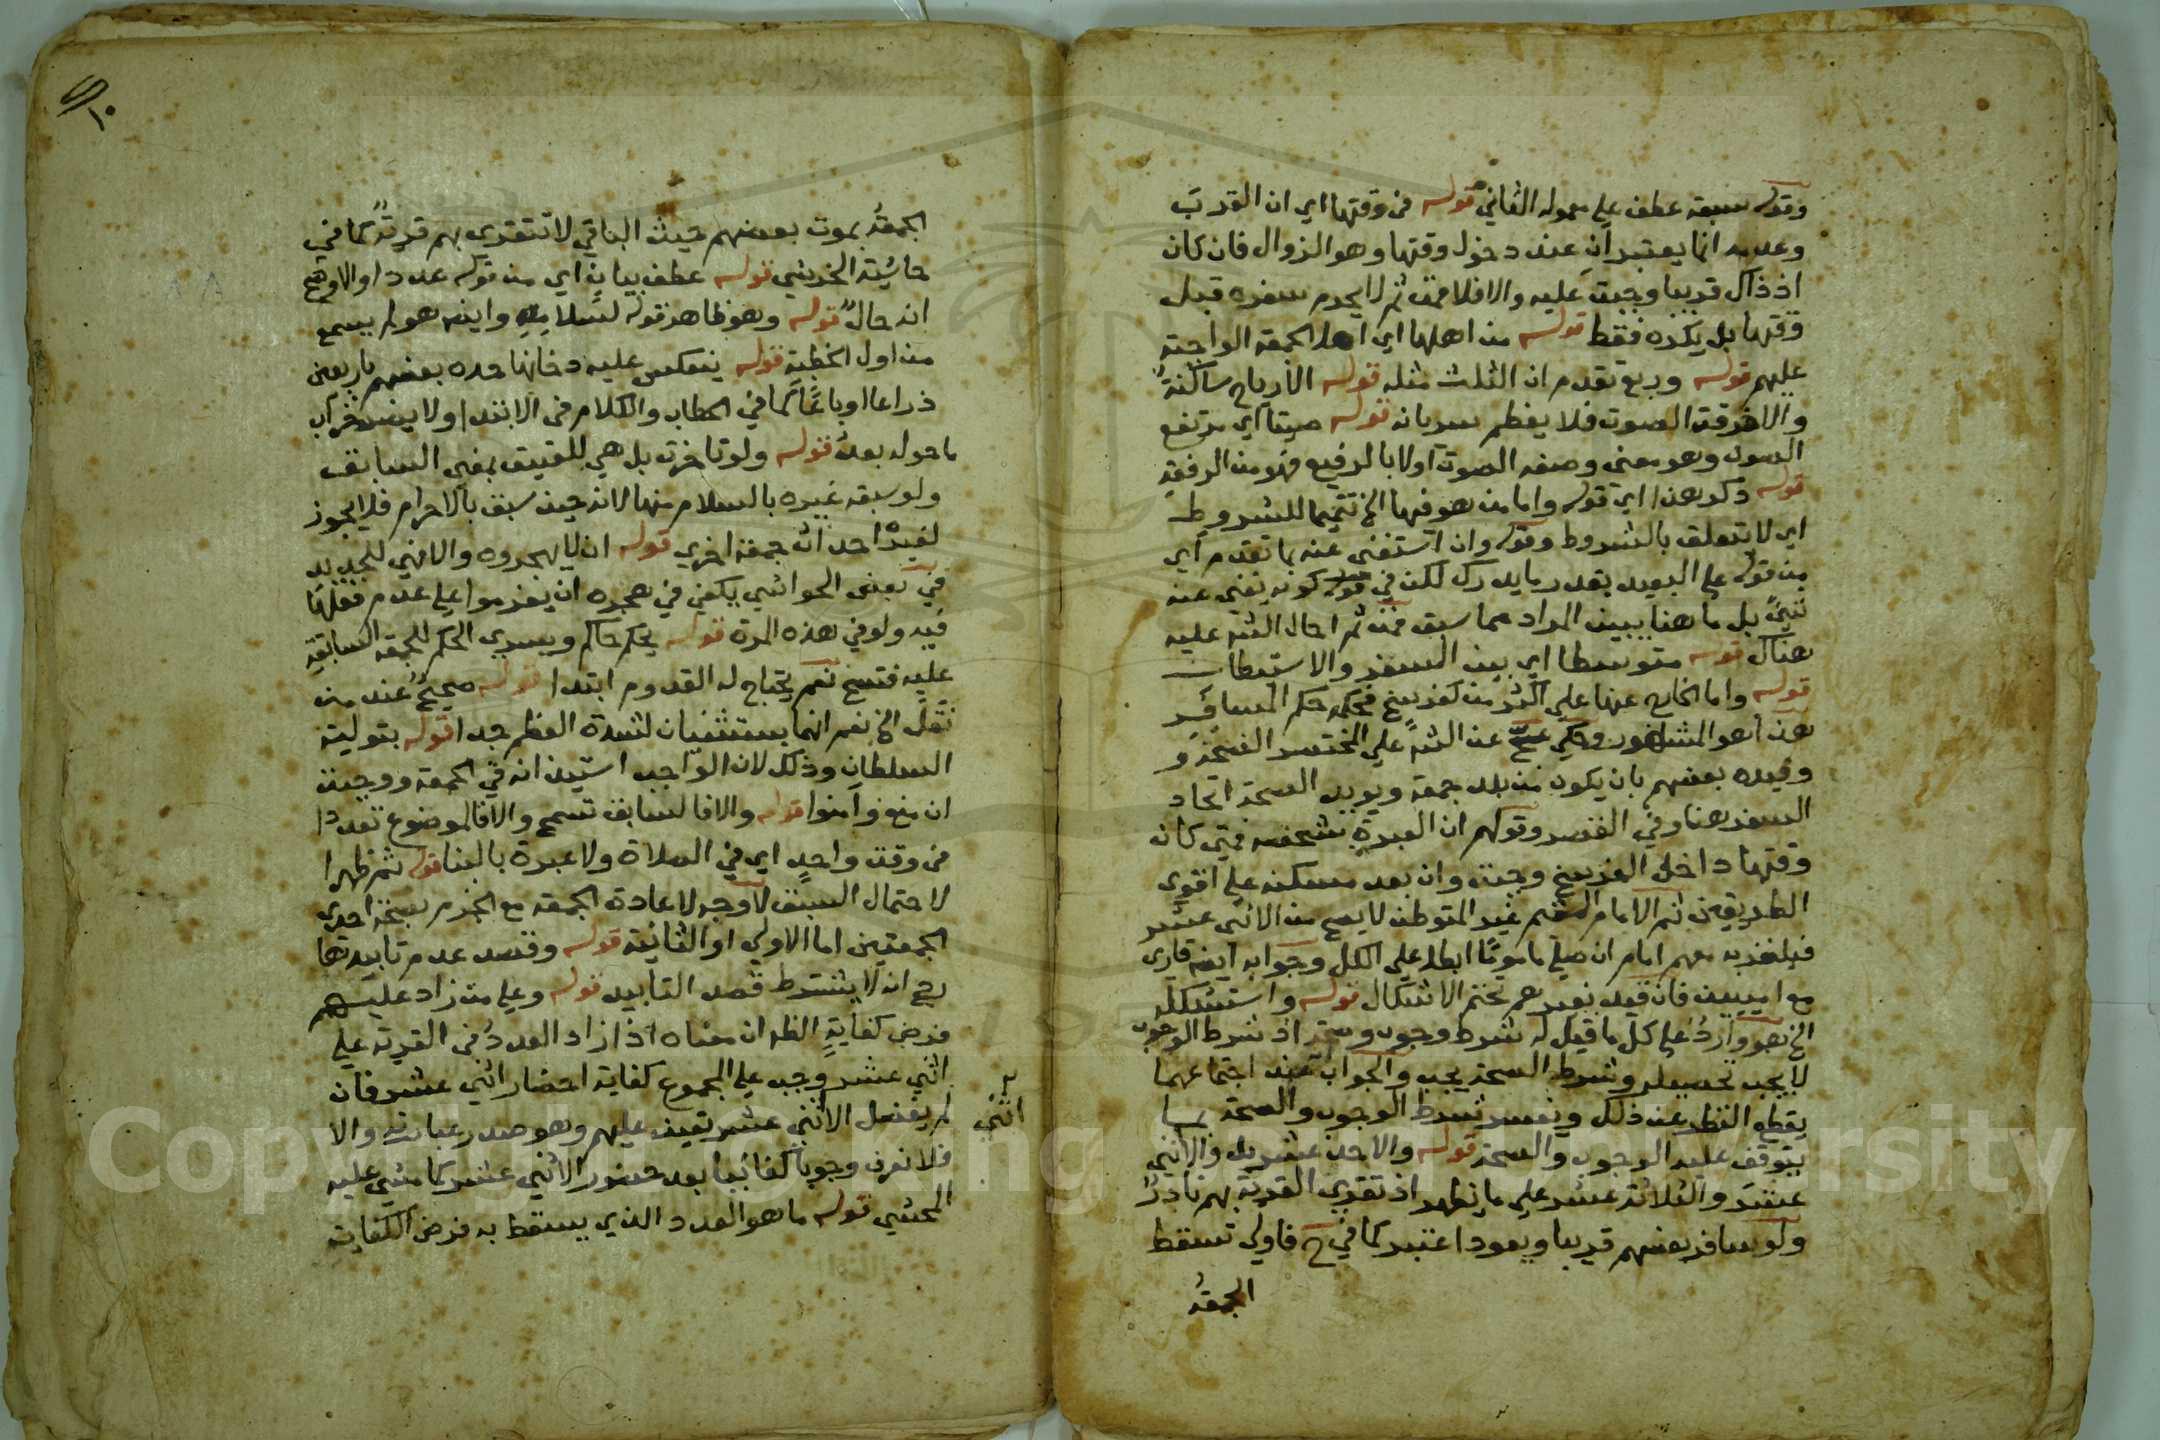 وقوله سبقه عطف على معموله الثاني قوله في وقتها اي ان القرب
وعدمه انما يعتبران عند دخول وقتها وهو الزوال فان كان
اذ ذاك قريبا وجبت عليه والا فلا ثم لا يحرم سفره قبل
وقتها بل يكره فقط قوله من اهلها اي اهل الجمعة الواجبة
عليهم قوله وربع تقدم ان الثلث مثله قوله الارياح ساكنة
والا فرقت الصوت فلا يعظم سريانه قوله صيتا اي مرتفع
الصوت وهو معنى وصفه الصوت اولا بالرفيع فهو من الرفعة
قوله ذكر هذا اي قوله واما من هو فيها الخ تتميما للشروط
اي لا تتعلق بالشروط وقوله وان استغنى عنه بما تقدم اي
من قوله على البعيد بقدر ما يدرك لكن في قوله كونه يغني عنه
شيئ بل ما هنا يبين المراد مما سبق ثم احال الشيخ عليه
هناك قوله متوسطا اي بين السفر والاستيطان
قوله واما الخارج عنها على اكثر من كفرسخ فحكمه حكم المسافر
هذا هو المشهور وحكي عن على المختصر الصحة و
وقيده بعضهم بان يكون من بلد جمعة ويؤيد الصحة اتحاد
السفر هنا وفي القصر وقولهم ان العبرة بشخصه فمتى كان
وقتها داخل الفرسخ وجبت وان بعد مسكنه على اقوى
الطريقين ثم الامام المقيم غير المتوطن لا يصح من الاثنى عشر
فيلغز به معهم امام ان صلى ماموما ابطل على الكل وجوابه ايضا قارى
مع اميين فان قيد بغيرهم تحتم الاشكال قوله واستشكل
الخ هو وارد على كل ما قيل له شرط وجوب وصحة اذ شرط الوجوب
لا يجب تحصيله وشرط الصحة يجب والجواب عند اجتماعهما
يقطع النظر عن ذلك ويفسر شرط الوجوب والصحة بما
يتوقف عليه الوجوب والصحة قوله والاحد عشر بل والاثني
عشر والثلاثة عشر على ما يظهر اذ تقري القرية بهم نادر
ولو سافر بعضهم قريبا ويعود اعتبر كما في ح فاولى تسقط
الجمعة
١٠
الجمعة بموت بعضهم حيث الباقي لا تتقرى بهم قرية كما في
حاشية الخرشي قوله عطف بيان اي من قوله عددا والاوضح
انه حال قوله وهو ظاهر قوله لسلامه وايضا هو لم يسمع
من اول الخطبة قوله ينعكس عليه دخانها حده بعضهم باربعين
ذراعا او باعًا كما في الحطاب والكلام في الابتدا ولا يضر خراب
ما حوله بعد قوله ولو تاخرت بل هي للعتيق بمعنى السابق
ولو سبقه غيره بالسلام منها لانه حين سبق بالاحرام فلا يجوز
لغيره احداث جمعة اخرى قوله ان لا يهجروه والا فهي للجديد
في بعض الحواشي يكفي في هجره ان يعزموا على عدم فعلها
فيه ولو في هذه المرة قوله بحكم حاكم ويسري الحكم للجمعة السابقة
عليه فتصح نعم يحتاج له القدوم ابتدا قوله صحيح عند من
نقل الخ نعم انهما يستثنيان لشدة العظم جدا قوله بتولية
السلطان وذلك لان الواجب استيذانه في الجمعة ووجبت
ان منع وامنوا قوله والا فالسابق تسمح والا فالموضوع تعددا
في وقت واحد اي في الصلاة ولا عبرة بالبنا قوله ثم ظهرا
لاحتمال السبق لا وجه لاعادة الجمعة مع الجزم بصحة احدى
الجمعتين اما الاولى او الثانية قوله وقصد عدم تابيدها
رجح انه لا يشترط قصد التابيد قوله وعلى من زاد عليهم
فرض كفاية الظاهر ان معناه اذا زاد العدد في القرية على
اثني عشر وجب على المجموع كفاية احضار اثني عشر فان
لم يفضل الا اثني عشر تعين عليهم وهو صدر عبارته والا
اثني
فلا نعرف وجوبا كفائيا بعد حضور الاثني عشر كما مشى عليه
المحشي قوله ما هو العدد الذي يسقط به فرض الكفاية
Copyright © King Saud University